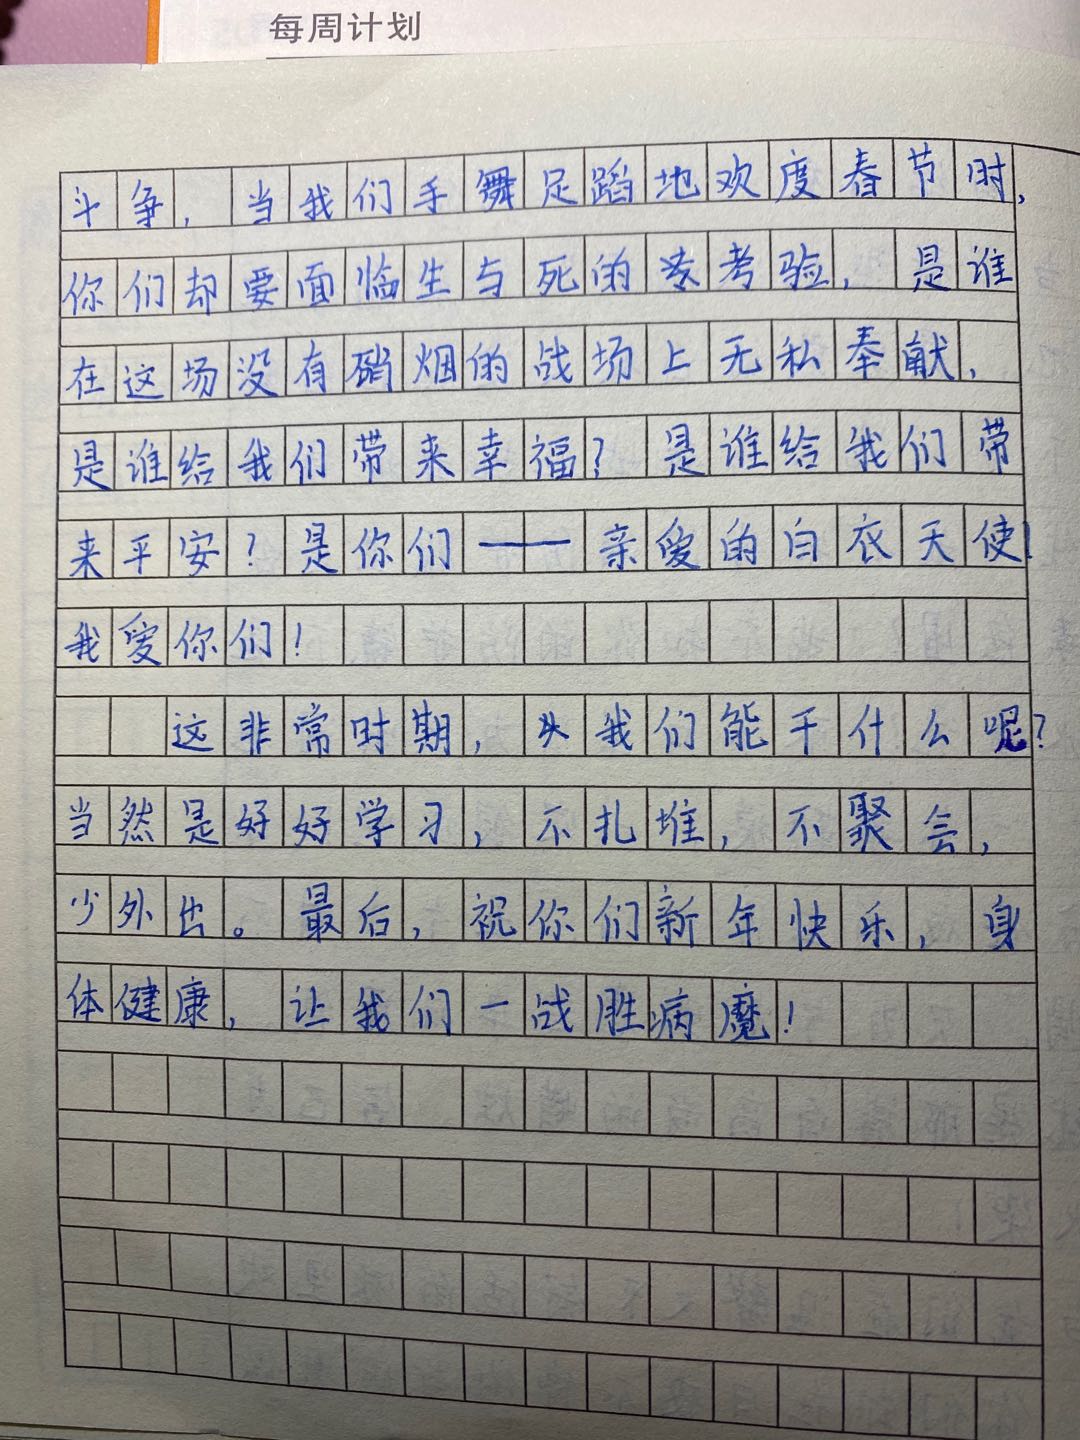 每周计划
斗争，当我们手舞足蹈地欢度春节时，
你们却要面临生与死的考验，是谁
在这场没有硝烟的战场上无私奉献，
是谁给我们带来幸福？是谁给我们带
来平安？是你们——亲爱的白衣天使！
我爱你们！
这非常时期，我们能干什么呢？
当然是好好学习，不扎堆，不聚会，
少外出。最后，祝你们新年快乐，身
体健康，让我们一战胜病魔！